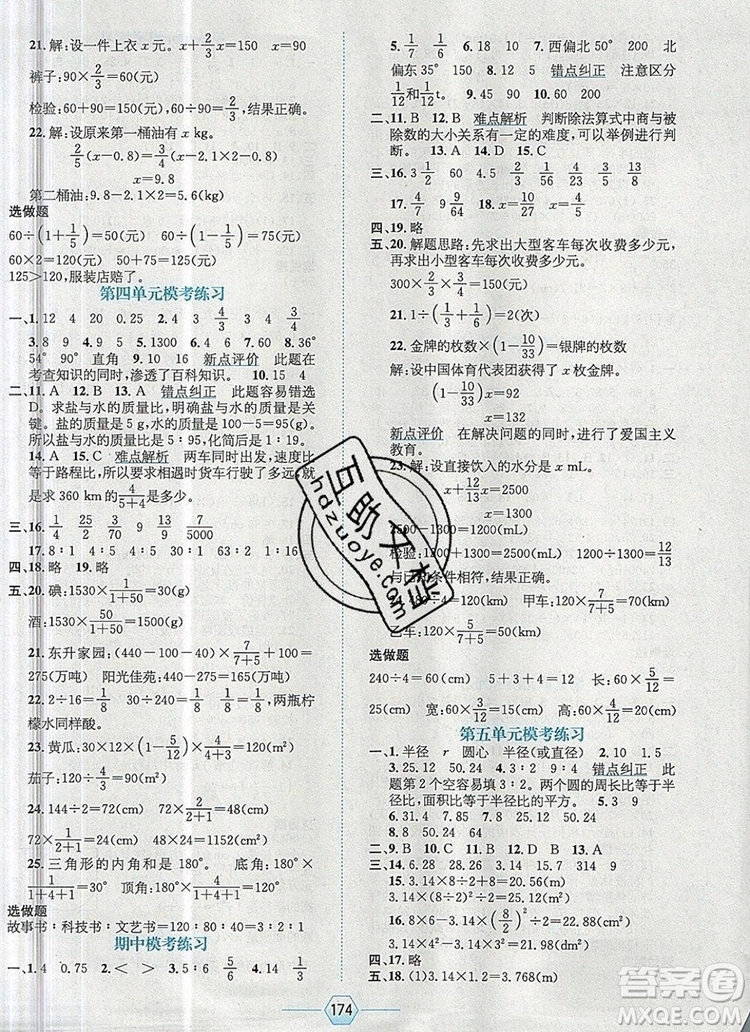 21. 解:设一件上衣x元。x+2/3x=150 x=90
裤子:90×2/3=60(元)
检验:60+90=150(元),60÷90=2/3,结果正确。
22. 解:设原来第一桶油有x kg。
5/6(x-0.8)=3/4x-0.2
x=9.8
第二桶油:9.8-2.1×2=5.6(kg)
选做题
60÷(1+1/5)=50(元) 60÷(1-1/5)=75(元)
60×2=120(元) 50+75=125(元)
125>120,服装店赔了。
第四单元模考练习
一、1. 12 4 20 0.25 2. 4 3 4/3 3/4
3. 8 9 4. 15 9 5. 1300 6. 4 7. 6 8. 36°
54° 90° 直角 9. 10 16 新点评价 此题在
考查知识的同时,渗透了百科知识。 10. 15 4
二、11. A 12. B 13. A 错点纠正 此题容易错选
D。求盐与水的质量比,明确盐与水的质量是
关键。盐的质量是5g,水的质量是100-5=95(g)
所以盐与水的质量比是5:95,化简后是1:19。
14. A 15. C 难点解析 两车同时出发,速度比
等于路程比,所以要求相遇时货车行驶了多少,
就是求360 km的4/(5+4)是多少。
三、16. 1/4 25/2 3/4 70 9 9/13 7/7500
17. 8:1 4:5 30:1 63:2 1:16
四、18. 略 19. 略
五、20. 碘:1530×1/(1+50)=30(g)
酒:1530×50/(1+50)=1500(g)
21. 东升家园:(440-100-40)×7/(7+5)+100=
275(万吨) 阳光佳苑:440-275=165(万吨)
22. 2÷16=1/8 30÷240=1/8 1/8=1/8,两瓶柠
檬水同样酸。
23. 黄瓜:30×40×(1-5/12)×4/(4+3)=400(m²)
茄子:30×40×(1-5/12)×3/(4+3)=300(m²)
24. 144÷2=72(cm) 72×2/(1+2)=48(cm)
72×1/(2+1)=24(cm) 48×24=1152(cm²)
25. 三角形的内角和是180°。 底角:180°×
1/(1+4+1)=30° 顶角:180°×4/(1+4+1)=120°
选做题
故事书:科技书:文艺书=120:80:40=3:2:1
期中模考练习
一、1. 4 0.75 2. < > 3. 5 5/6 4. 14 1/6
5. 1/7 1/6 6. 18 10 7. 西偏北50° 200 北
偏东35° 150 8. 1/12 1/12 错点纠正 注意区分
1/12和1/12 t。 9. 45 90 10. 60
二、11. B 12. B 难点解析 判断除法算式中商与被
除数的大小关系有一定的难度,可以举例进行判
断。 13. A 14. D 15. C
三、16. 3 1/2 60 4/5 3/4 1/8 3/56 1/6
17. 4/7 9 9/64 18. x=40 x=3/2 x=12
四、19. 略
五、20. 解题思路:先求出大型客车每次收费多少元,
再求出小型客车每次收费多少元。
21. 1÷(1/3+1/6)=2(次)
22. 金牌的枚数×(1-10/33)=银牌的枚数
解:设中国体育代表团获得了x枚金牌。
(1-10/33)x=92
x=132
新点评价 在解决问题的同时,进行了爱国主义
教育。
23. 解:设直接饮入的水分是x mL。
x+12/13x=2500
x=1300
2500-1300=1200(mL)
检验:1200+1300=2500(mL) 1200÷1300=12/13
与已知条件相符,结果正确。
甲车:120×7/(7+5)=70(km)
乙车:120×5/(7+5)=50(km)
选做题
240÷4=60(cm) 5+3+4=12 60×5/12=
25(cm) 宽:60×3/12=15(cm) 高:60×4/12=20(cm)
第五单元模考练习
一、1. 半径 r 圆心 半径(或直径) 2. 10 1.5
3. 25.12 50.24 4. 3:2 9:4 错点纠正 此
题第2个空容易填3:2。两个圆的周长比等于半
径比,面积比等于半径比的平方。 5. 3 9
6. 31.4 7. 15.7 25.12
8. 8 50.24 64
二、9. C 10. C 11. B 12. B 13. A
三、14. 6.28 28.26 5 3.14 6 113.04
15. 3.14×8÷2+8=20.56(cm)
16. 3.14×8÷2+3.14×(8/2)²÷2=37.68(cm²)
四、17. 略
五、18. (1)3.14×1.2=3.768(m)
174
互助文档
hdzuoye.com
答案圈
MXQE.COM